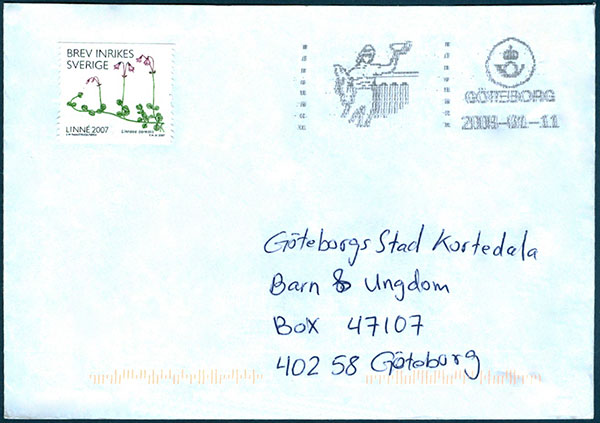 BREV INRIKES
SVERIGE
LINNÉ 2007
Linnaea borealis
GÖTEBORG
2008-01-11
Göteborgs Stad Kortedala
Barn & Ungdom
Box 47107
402 58 Göteborg